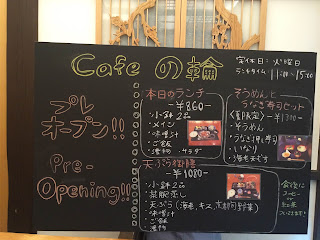 Cafe の輪
定休日:火曜日
ランチタイム 11:00~15:00
プレ
オープン!!
Pre-
Opening!!
本日のランチ
-¥860-
・小鉢2品
・メイン
・味噌汁
・ご飯
・漬物・サラダ
天ぷら御膳
-¥1080-
・小鉢2品
・茶碗蒸し
・天ぷら(海老、キス、京都旬野菜)
・味噌汁
・ご飯
・漬物
そうめんと
うなぎ寿司セット
(夏限定) -¥1300-
・そうめん
・うなぎ押し寿司
・いなり
・海老天むす
食後に
コーヒー
or
紅茶
ついてます!